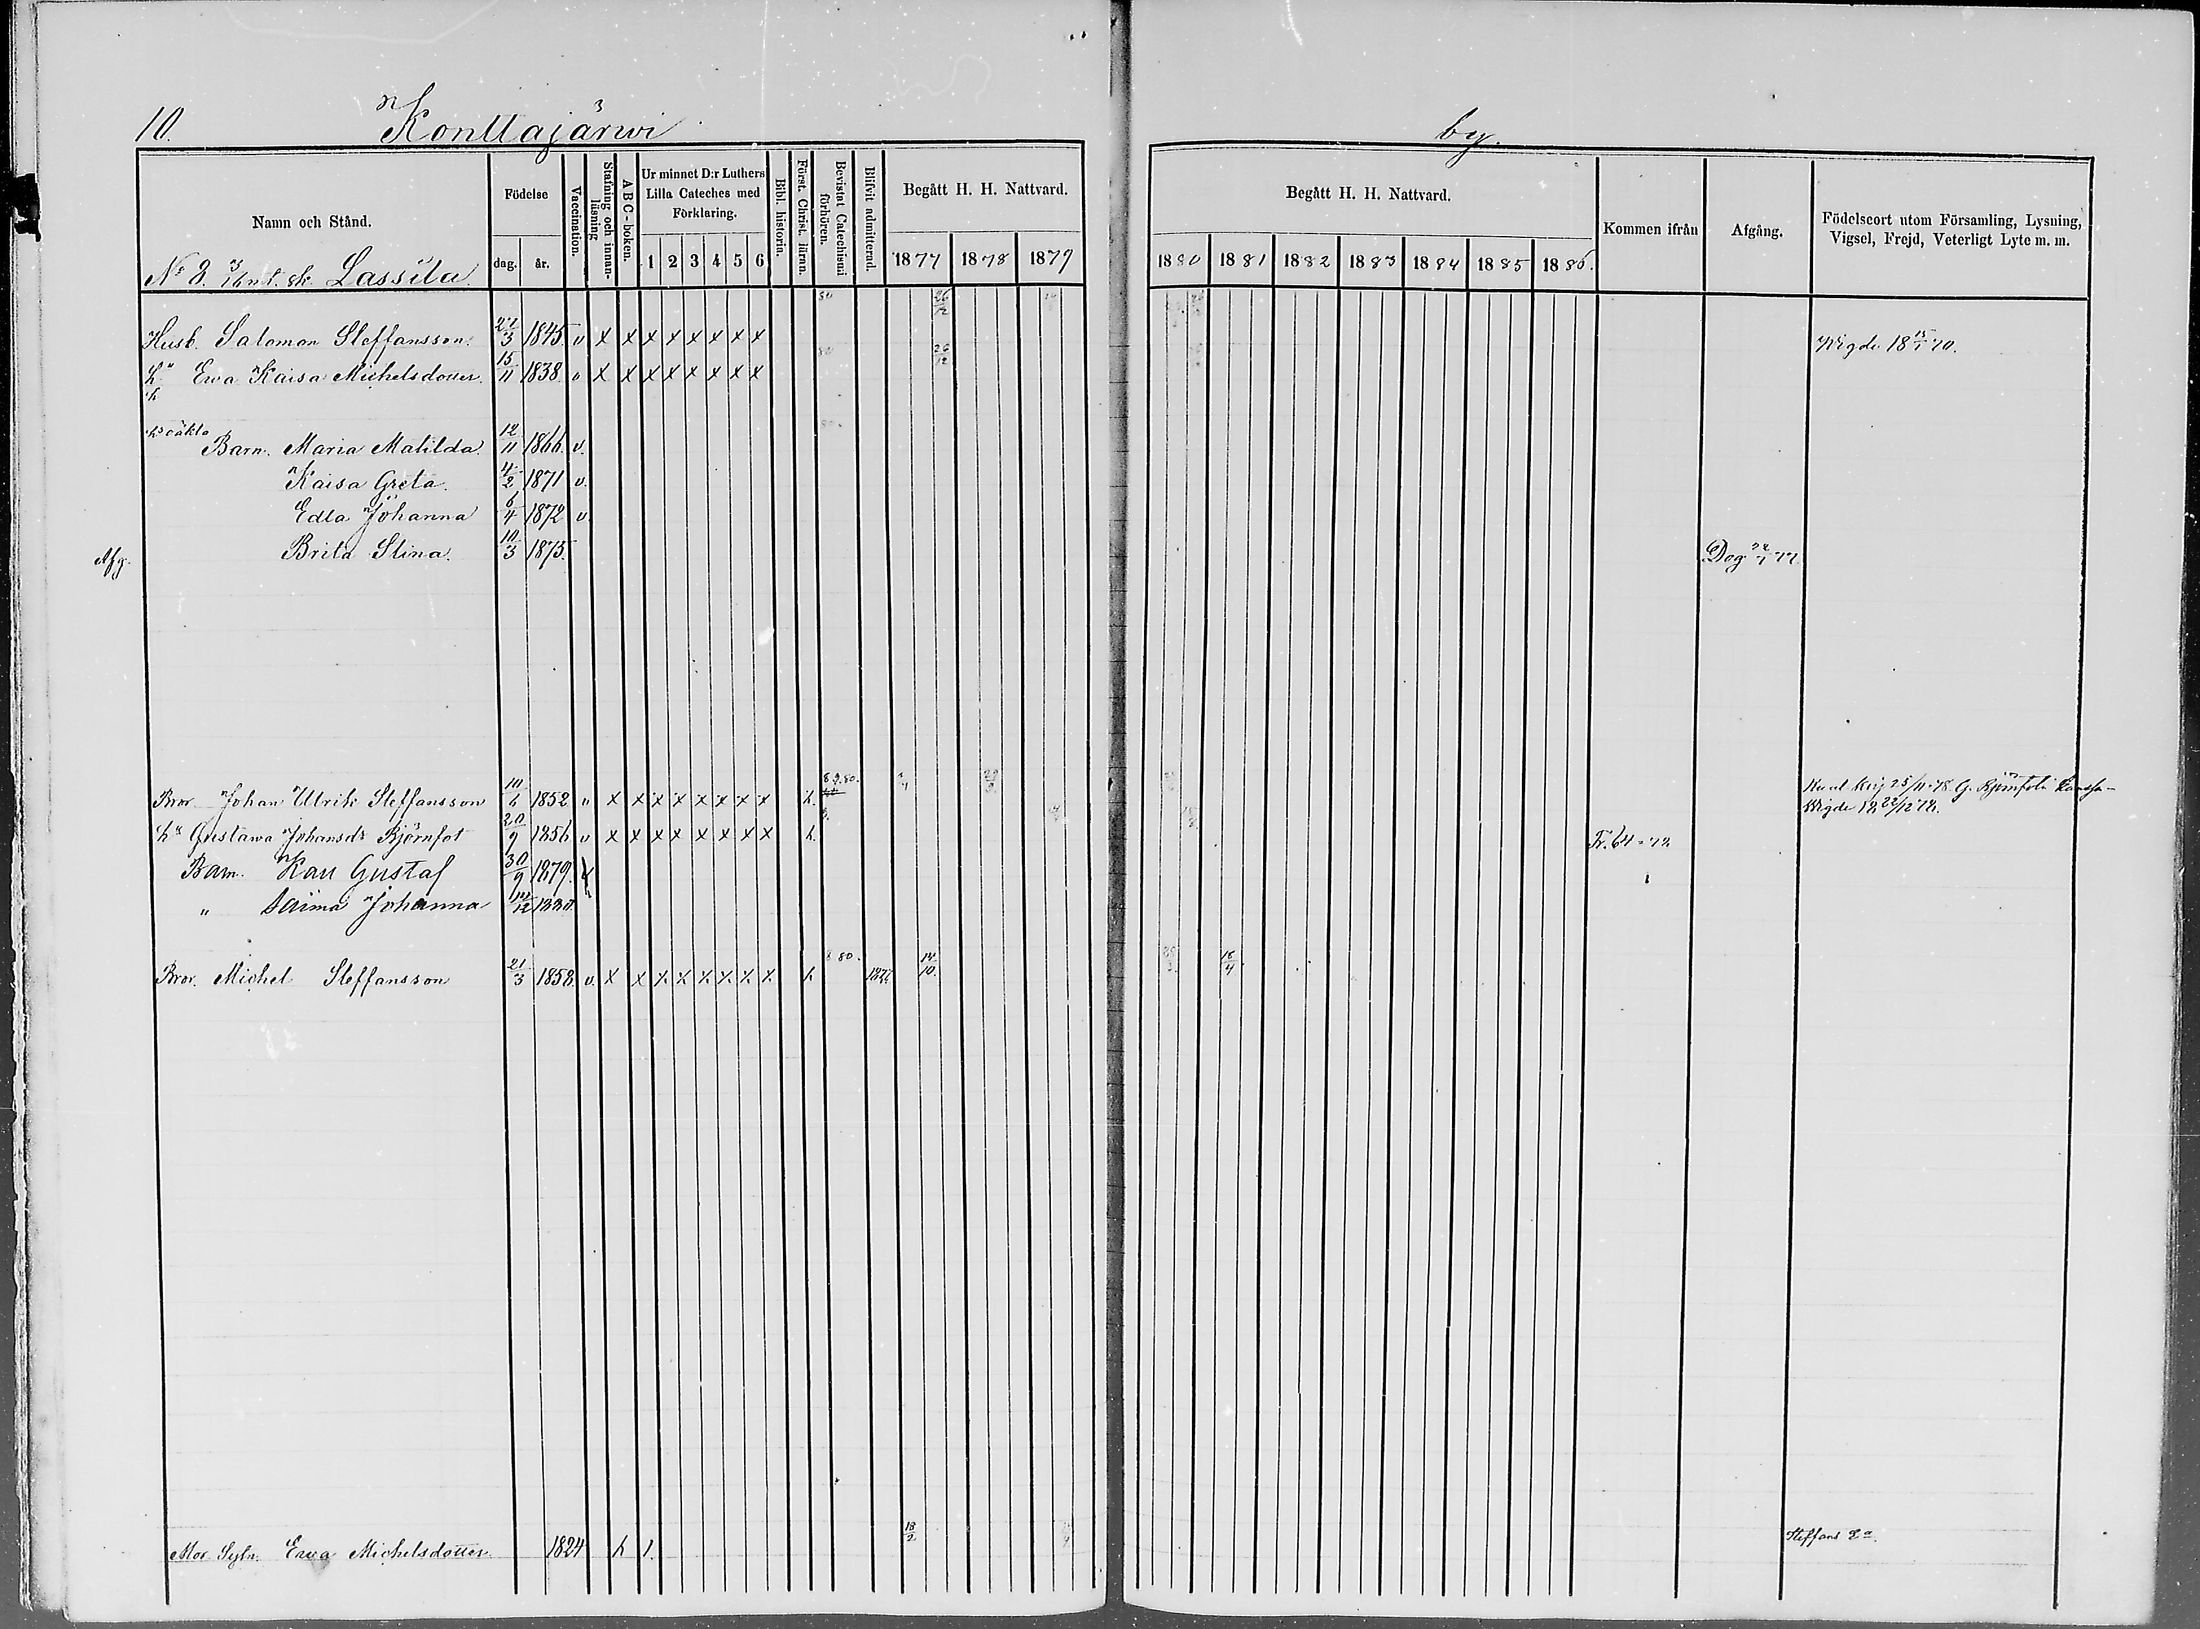 10. Konttajärwi by.
Namn och Stånd.
Födelse
dag. år.
Vaccination.
Stafning och innanläsning
ABC-boken.
Ur minnet D:r Luthers Lilla Cateches med Förklaring.
1 2 3 4 5 6
Bibl. historia.
Först. Christ. läran.
Bevistat Catechismi förhören.
Blifvit admitterad.
Begått H. H. Nattvard.
1877 1878 1879
Begått H. H. Nattvard.
1880 1881 1882 1883 1884 1885 1886.
Kommen ifrån
Afgång.
Födelseort utom Församling, Lysning, Vigsel, Frejd, Veterligt Lyte m. m.
No 8. Lassila
Husb. Salomon Steffansson. 27/3 1845. v x x x x x x x x 26/12 Wigde 18 15/1 70.
h:u Ewa Kaisa Michelsdotter. 15/11 1838. v x x x x x x x x 26/12
oäkta
Barn. Maria Matilda. 12/11 1866. v.
Kaisa Greta. 4/2 1871 v.
Edla Johanna 6/4 1872 v.
Afg. Brita Stina. 10/3 1875. Dog 77
Bror Johan Ulrik Steffansson 10/6 1852 v x x x x x x x x h. 80.
Wigde
h:u Gustawa Johansdr Björnfot 20/9 1856 v x x x x x x x x h. Fr. 64 = 78
Barn. Karl Gustaf 30/9 1879.
" Saima Johanna
Bror. Michel Steffansson 21/3 1858. v. x x x x x x x x h 80. 14/10. 18/4
Mor Sytn. Ewa Michelsdotter. 1824 h 1. 18/2 Steffans E:a